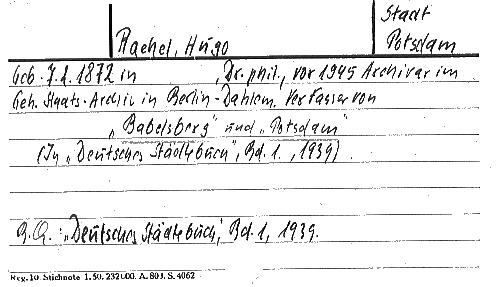 Stadt
Rachel, Hugo Potsdam
Geb. 7.2.1872 in , Dr. phil., vor 1945 Archivar im
Geh. Staats-Archiv in Berlin-Dahlem. Verfasser von
„Babelsberg" und „Potsdam"
(In „Deutsches Städtebuch", Bd. 1., 1939)
B.Q.: „Deutsches Städtebuch", Bd. 1, 1939.
Reg. 10. Stichnote 1. 50. 232000. A. 803. S. 4062